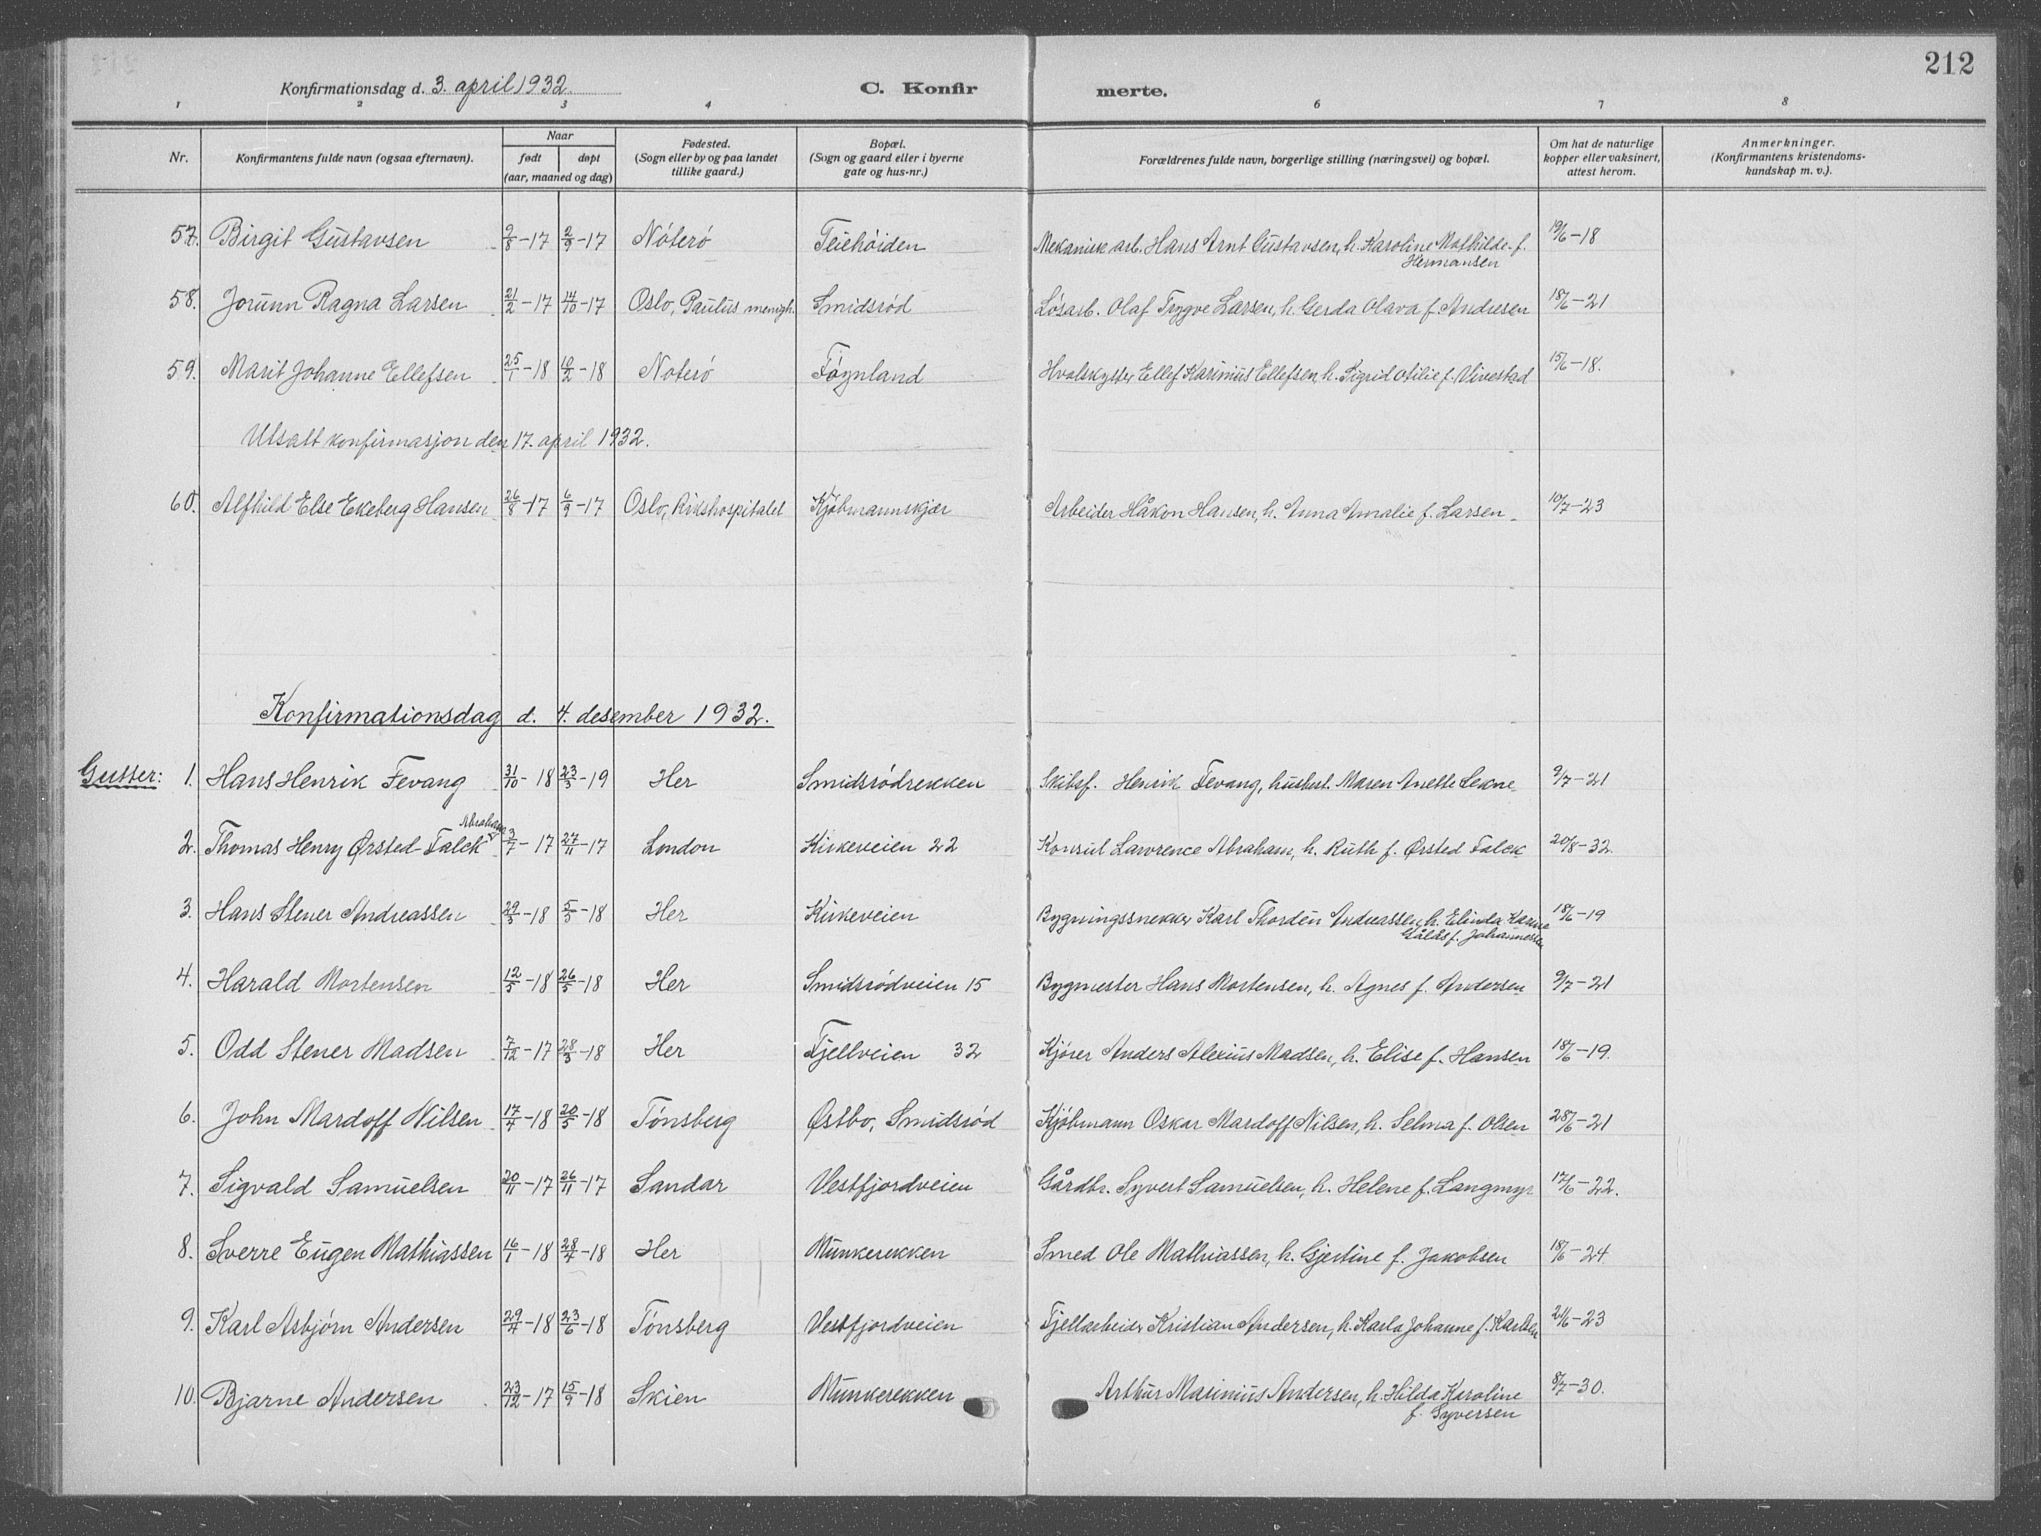 212
Konfirmationsdag d. 3. april 1932. C. Konfirmerte.
1 2 3 4 6 7 8
Nr. Konfirmantens fulde navn (ogsaa efternavn). Naar født døpt (aar, maaned og dag) Fødested. (Sogn eller by og paa landet tillike gaard.) Bopæl. (Sogn og gaard eller i byerne gate og hus-nr.) Forældrenes fulde navn, borgerlige stilling (næringsvei) og bopæl. Om hat de naturlige kopper eller vaksinert, attest herom. Anmerkninger. (Konfirmantens kristendoms-kundskap m. v.).
57. Birgit Gustavsen 9/8-17 2/9-17 Nøterø Teiehøiden Mekanisk arb. Hans Arnt Gustavsen, h. Karoline Mathilde f. Hermansen 19/6-18
58. Jorunn Ragna Larsen 21/2-17 14/10-17 Oslo, Paulus menigh. Smidsrød Løsarb. Olaf Trygve Larsen, h. Gerda Olava f. Andresen 18/6-21
59. Marit Johanne Ellefsen 25/1-18 10/2-18 Nøterø Føynland Hvalskytter Ellef Karinius Ellefsen, h. Sigrid Otilie f. Vivestad 15/6-18.
Utsatt konfirmasjon den 17. april 1932.
60. Alfhild Else Ekeberg Hansen 26/8-17 6/9-17 Oslo, Rikshospitalet Kjøbmannskjær Arbeider Håkon Hansen, h. Anna Amalie f. Larsen 10/7-23
Konfirmationsdag d. 4. desember 1932.
Gutter: 1. Hans Henrik Fevang 31/10-18 23/3-19 Her Smidsrødrekken Skibsf. Henrik Fevang, hustert. Maren Anette Lekne 9/7-21
2. Thomas Henry Ørsted-Falck Abraham 3/7-17 27/11-17 London Kirkeveien 22 Konsul Lawrence Abraham, h. Ruth f. Ørsted Falck 20/8-32.
3. Hans Stener Andreassen 29/3-18 5/5-18 Her Kirkeveien Bygningssnekker Karl Thordin Andreassen, h. Elinda Karine f. Johannesen 18/6-19
4. Harald Mortensen 12/5-18 26/5-18 Her Smidsrødveien 15 Bygmester Hans Mortensen, h. Agnes f. Andersen 9/7-21
5. Odd Stener Madsen 7/12-17 28/3-18 Her Fjellveien 32 Kjører Anders Alexius Madsen, h. Elise f. Hansen 18/6-19.
6. John Mardoff Nilsen 17/4-18 20/5-18 Tønsberg Østbo, Smidsrød Kjøbmann Oskar Mardoff Nilsen, h. Selma f. Olsen 28/6-21
7. Sigvald Samuelsen 20/11-17 26/11-17 Sandar Vestfjordveien Gårdbr. Syvert Samuelsen, h. Helene f. Langmyr 17/6-22.
8. Sverre Eugen Mathiassen 16/1-18 28/4-18 Her Munkerekken Smed Ole Mathiassen, h. Gjertine f. Jakobsen 18/6-24
9. Karl Asbjørn Andersen 29/4-18 23/6-18 Tønsberg Vestfjordveien Fjellarbeider Kristian Andersen, h. Karla Johanne f. Karlsen 21/6-23
10. Bjarne Andersen 23/12-17 15/9-18 Skien Munkerekken Arthur Marinius Andersen, h. Hilda Karoline f. Syversen 8/7-30.